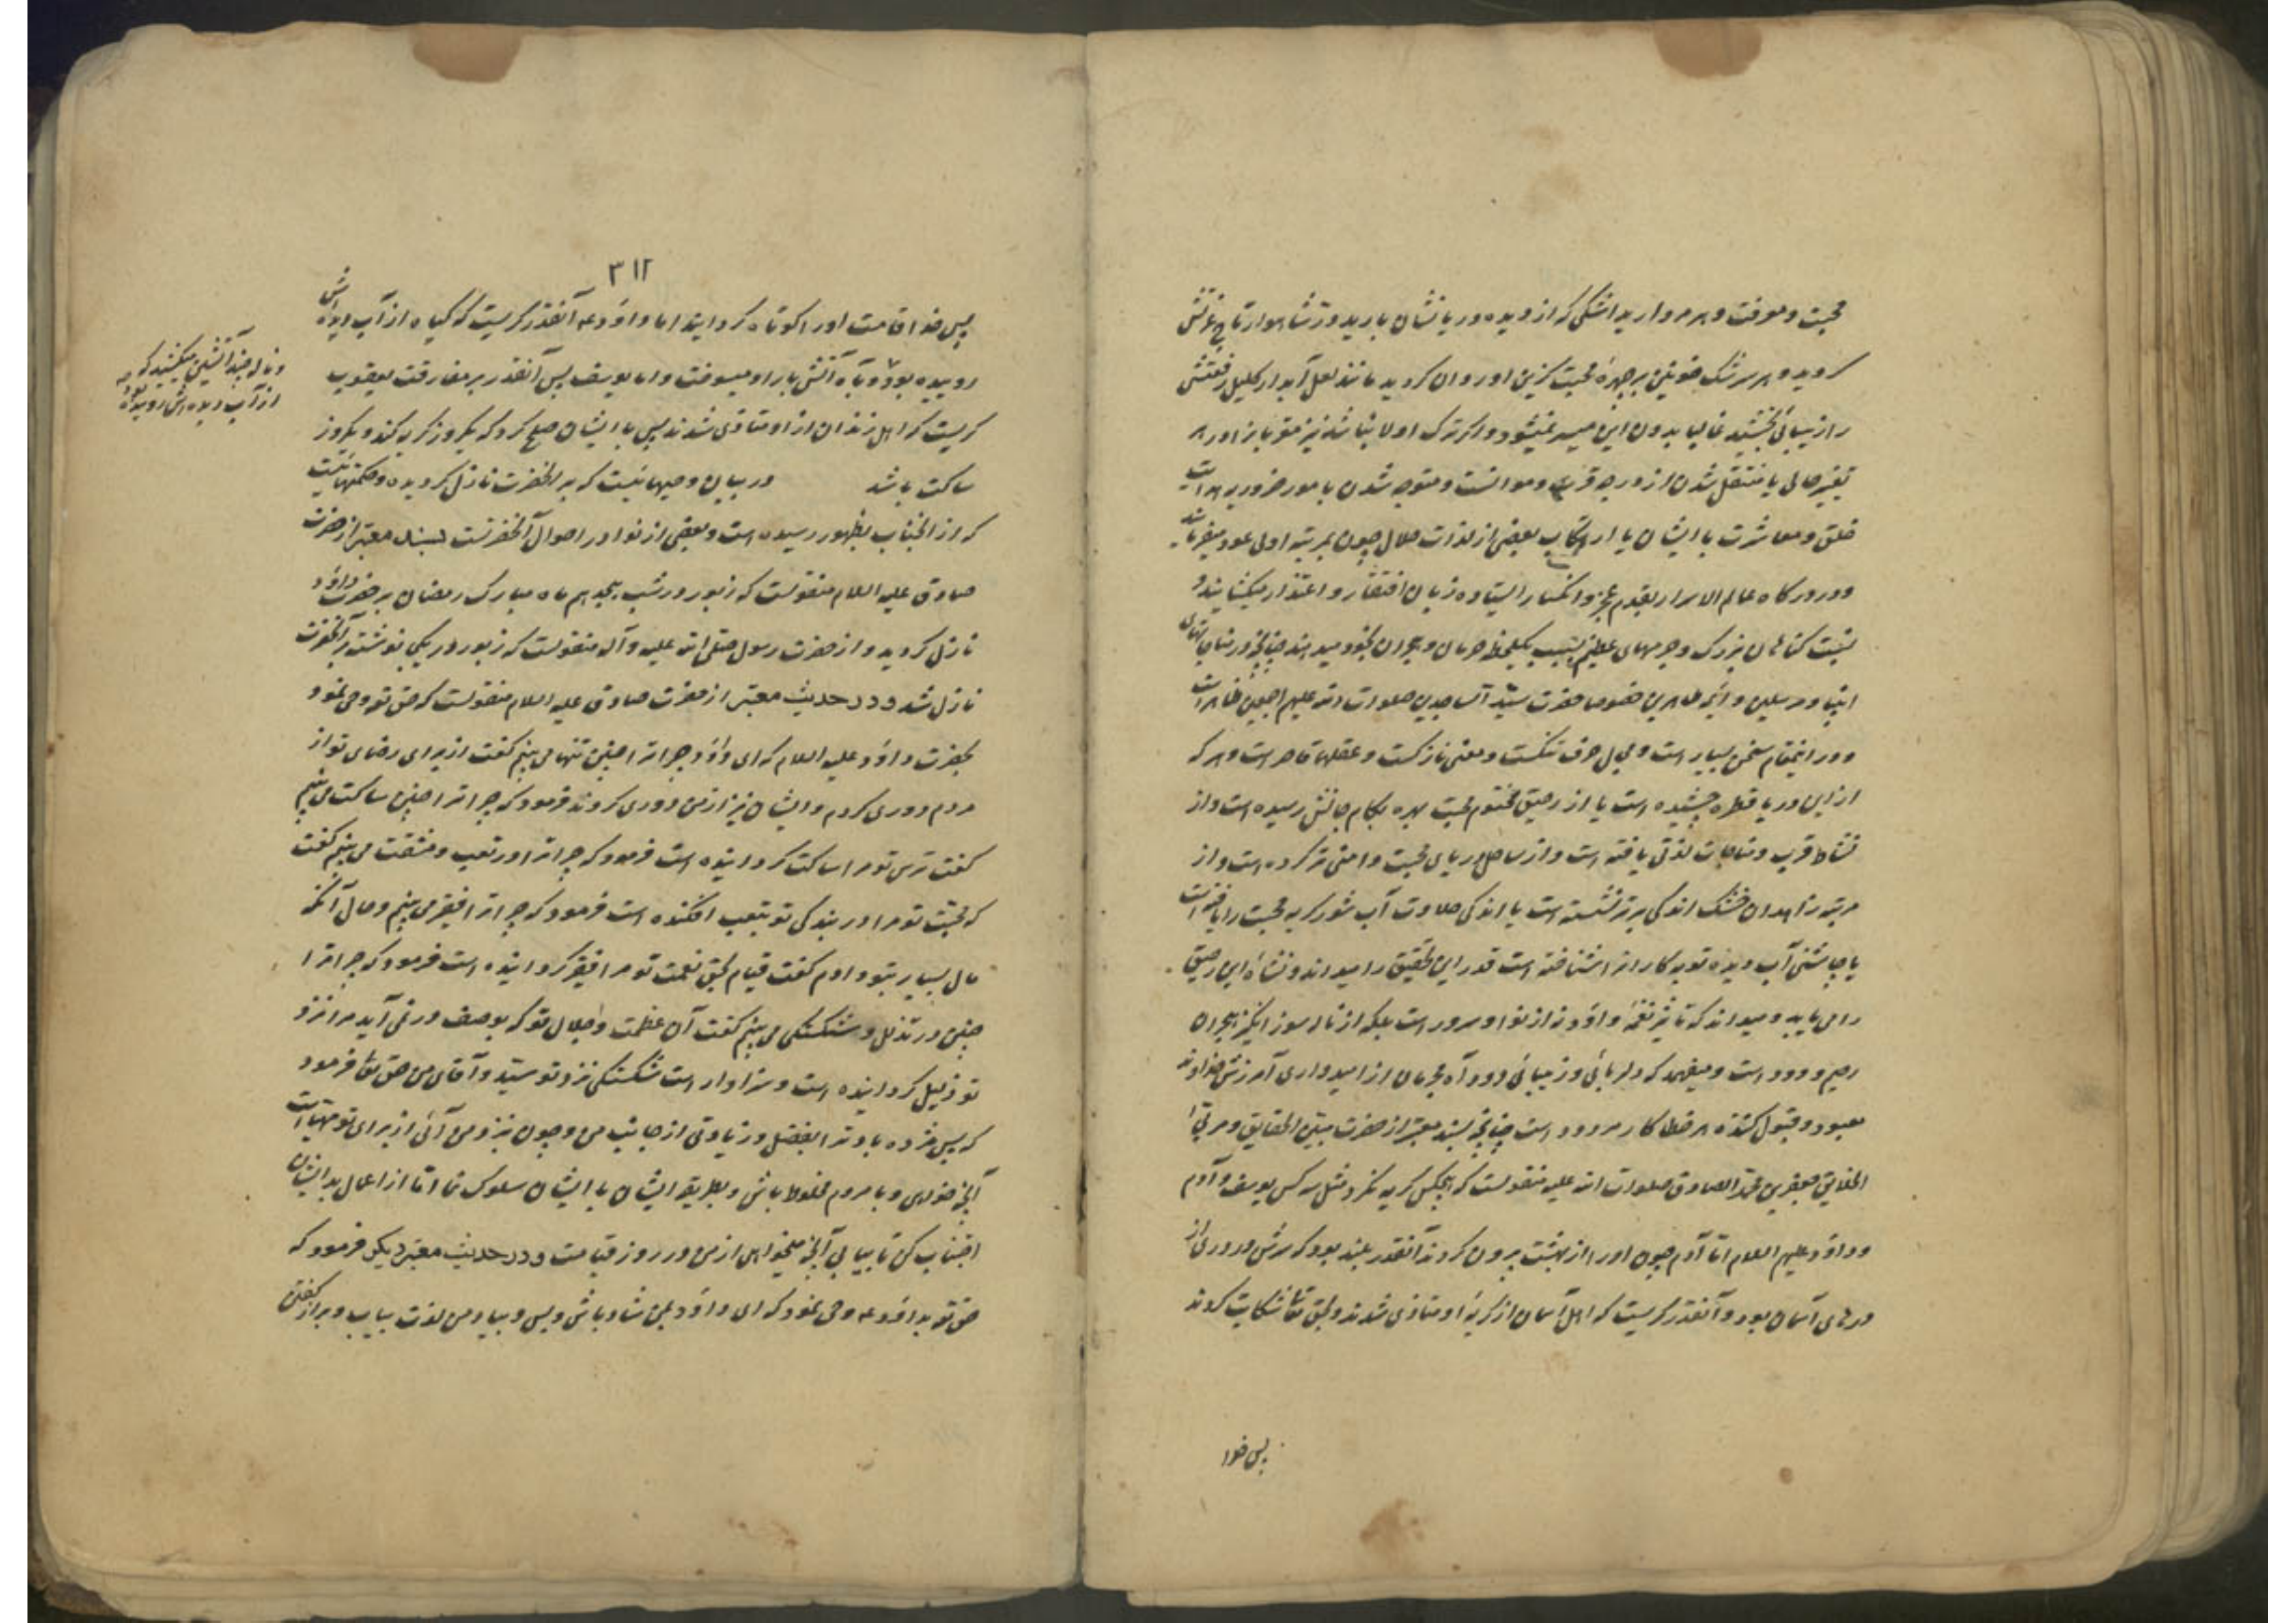 محبت و معرفت و هر مروارید اشکی که از دیده دریا نشان بارید در شاهوار تاج عزتش
گردید و هر سرشک خونین بر چهره محبت گزین او روان گردید مانند لعل آبدار اکلیل رفعتش
را زیبائی بخشید غالبا بدون این میسر نمیشود و اگر ترک اولا نباشد نیز مقربانرا در هر
تغیر حالی یا منتقل شدن از درجه قرب و موانست و متوجه شدن بامور ضروریه هدایت
خلق و معاشرت با ایشان یا ارتکاب بعضی از لذات حلال چون بمرتبه اولی عود میفرمایند
و در درگاه عالم الاسرار بقدم عجز و انکسار ایستاده زبان افتقار و اعتذار میگشایند و
نسبت گناهان بزرگ و جرمهای عظیم بسبب یکلحظه حرمان و هجران بخود میدهند چنانچه در مناجات
انبیا و مرسلین و ائمه طاهرین خصوصا حضرت سید الساجدین صلوات الله علیهم اجمعین ظاهر است
و در اینمقام سخن بسیار است و مجال حرف تنگست و معنی نازکست و عقلها قاصر است و هر که
از این دریا قطره چشیده است یا از رحیق مختوم محبت بهره بکام جانش رسیده است و از
نشاط قرب و مناجات لذتی یافته است و از ساحل دریای محبت دامنی تر کرده است و از
مرتبه زاهدان خشک اندکی برتر نشسته است یا اندکی حلاوت آب شور گریه محبت را یافته است
یا چاشنی آب دیده توبه کارانرا شناخته است قدر این تحقیق را میداند و نشاه این رحیق
را می یابد و میداند که تاثیر نغمه داود نه از نوا و سرور است بلکه از ناله سوز انگیز هجران
رحیم ودود است و میفهمد که دلربائی و زیبائی دود آه مجرمان از امیدواری آمرزش خداوند
معبود و قبول کننده هر خطا کار مردود است چنانچه بسند معتبر از حضرت مبین الحقایق و مربی
الخلایق جعفر بن محمد الصادق صلوات الله علیه منقولست که هیچکس گریه نکرد مثل سه کس یوسف و آدم
و داود علیهم السلام اما آدم چون او را از بهشت بیرون کردند آنقدر بلند بود که سرش در دری از
درهای آسمان بود و آنقدر گریست که اهل آسمان از گریه او متاذی شدند و بحق تعا شکایت کردند
پس خدا
٣١٢
پس خدا قامت او را کوتاه گردانید اما داود عه آنقدر گریست که گیاه از آب دیده اش
روییده بود و به آه آتش بار او میسوخت و اما یوسف پس آنقدر بر مفارقت یعقوب
گریست که اهل زندان از او متاذی شدند پس با ایشان صلح کرد که یکروز گریه کند و یکروز
ساکت باشد در بیان وحیهائیست که بر آنحضرت نازل گردیده و حکمتهائیست
که از آنجناب بظهور رسیده است و بعضی از نوادر احوال آنحضرتست بسند معتبر از حضرت
صادق علیه السلام منقولست که زبور در شب هیجدهم ماه مبارک رمضان بر حضرت داود
نازل گردید و از حضرت رسول صلی الله علیه و آله منقولست که زبور در یکجا نوشته بر آنحضرت
نازل شد و در حدیث معتبر از حضرت صادق علیه السلام منقولست که حق تعه وحی نمود
بحضرت داود علیه السلام که ای داود چرا ترا چنین تنها می بینم گفت از برای رضای تو از
مردم دوری کردم و ایشان نیز از من دوری کردند فرمود که چرا ترا چنین ساکت می بینم
گفت ترس تو مرا ساکت گردانیده است فرمود که چرا ترا در تعب و مشقت می بینم گفت
که محبت تو مرا در بندگی تو بتعب افکنده است فرمود که چرا ترا فقیر می بینم و حال آنکه
مال بسیار بتو دادم گفت قیام بحق نعمت تو مرا فقیر گردانیده است فرمود که چرا ترا
چنین در تذلل و شکستگی می بینم گفت آن عظمت و جلال تو که بوصف در نمی آید مرا نزد
تو ذلیل گردانیده است و سزاوار است شکستگی نزد تو سید و آقای من حق تعا فرمود
که پس مژده باد ترا بفضل و زیادتی از جانب من و چون بنزد من آئی از برای تو مهیا است
آنچه خواهی و با مردم مخلوط باش و بطریقه ایشان با ایشان سلوک نما اما از اعمال بد ایشان
اجتناب کن تا بیابی آنچه میخواهی از من در روز قیامت و در حدیث معتبر دیگر فرمود که
حق تع بداود عه وحی نمود که ای داود بمن شاد باش و بس و بیاد من لذت بیاب و براز گفتن
و ناله چند آتشین میکشید که
از آب دیده اش روییده بود